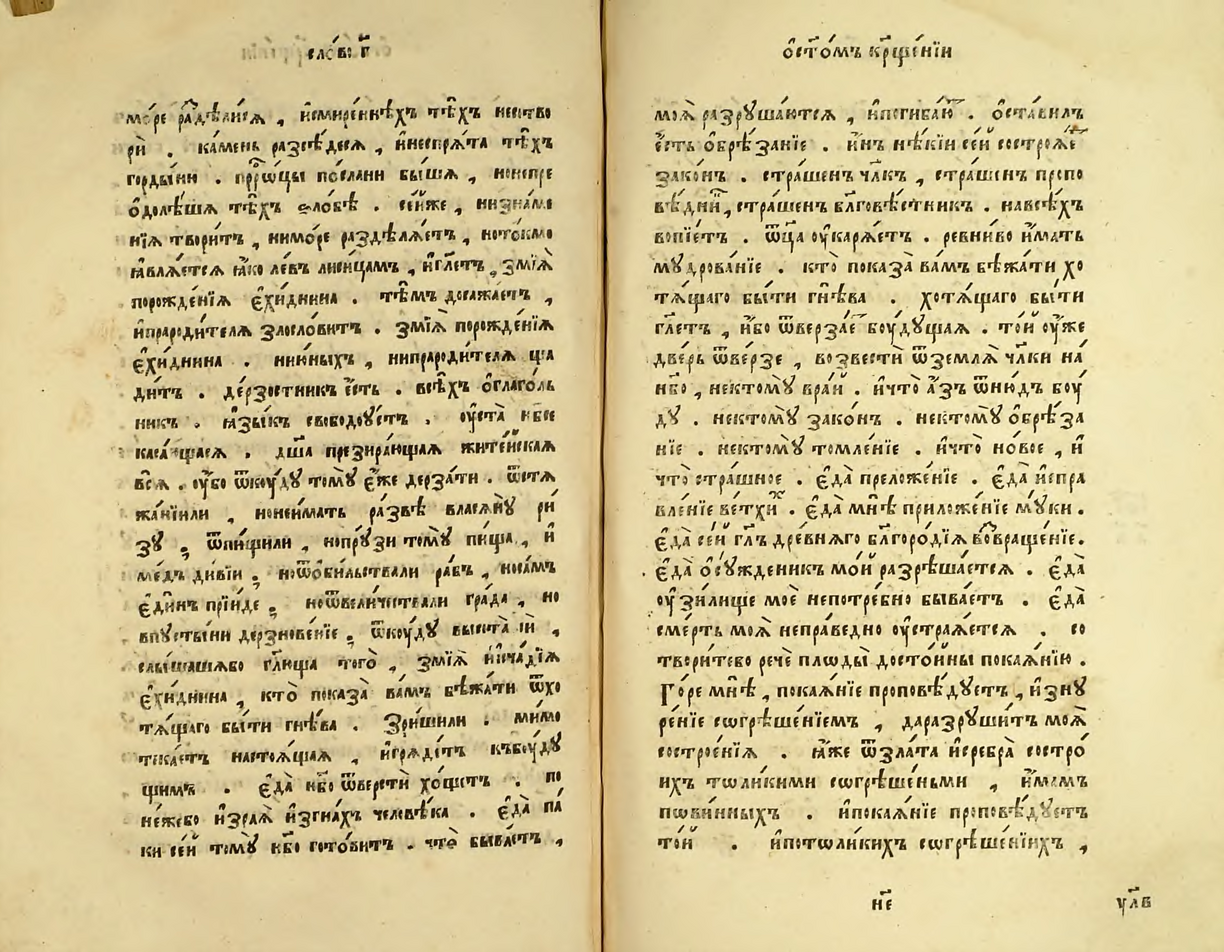 сло́во г҃
мо́ре раздѣлися , и҆смире́ннѣхъ тѣ́хъ несотво
рѝ . ка́мень разсѣ́деся , и҆несѡпрѧ́та тѣ́хъ
горды́ни . прⷪ҇ро́цы по́слани бы́шѧ , ноне́пре
ѻ҆долѣ́шѧ тѣ́хъ ѕло́бѣ . се́йже , низна́ме
нїѧ твори́тъ , нимо́ре раздѣлѧ́етъ , нето́кмо
ꙗ҆влѧ́етсѧ ꙗ҆́ко ле́въ лиси́цамъ , и҆гл҃етъ , ѕмїѧ̀
порожде́нїѧ є҆хи́днина . тѣ́мъ досажа́етъ ,
и҆прароди́телѧ злосло́витъ . ѕмїѧ̀ порожде́нїѧ
є҆хи́днина . нию́ныхъ , нипрароди́телѧ ща
ди́тъ . де́рзостникъ є҆́сть . всѣ́хъ ѻ҆глаго́ль
никъ . ꙗ҆зы́къ свобо́дꙋетъ . оу҆ста̀ нб҃се
каса́ющаѧсѧ . дш҃а̀ презира́ющаѧ жите́йскаѧ
всѧ̑ . оу҆́бо ѿкꙋ́дꙋ томꙋ̀ є҆́же дерза́ти . ѿстѧ
жа́нїили , нонеи́мать ра́звѣ власѧ́нꙋ ри
зꙋ , ѿпи́щили , нопрꙋ́зи томꙋ̀ пи́ща , и҆
ме́дъ ди́вїи , ноѿѻби́льствали ра́бъ , носа́мъ
є҆ди́нъ прїи́де , ноѿвели́чествали гра́да , но
впꙋсты́ни дерзнове́нїе , ѿкꙋ́дꙋ высота̀ сїѝ ,
слы́шашѧбо гл҃юща того̀ , ѕмїѧ̀ и҆ища́дїѧ
є҆хи́днина , кто̀ показа̀ ва́мъ бѣжа́ти ѿхо
тѧ́щаго бы́ти гнѣ́ва . Зри́шили . ми́мо
тека́етъ настоѧ́щаѧ , и҆грѧде́тъ къбꙋ́дꙋ
щимъ . є҆да̀ нб҃о ѿве́рсти хо́щетъ . по
не́жебо и҆зра́ѧ и҆згна́хъ человѣ́ка . є҆да̀ па
ки се́й томꙋ̀ нб҃о гото́витъ . что̀ быва́етъ ,
ѻ҆ст҃о́мъ кр҃ще́нїи
моѧ̑ разрꙋша́ютсѧ , и҆погиба́ю . ѻ҆ста́вилъ
є҆́сть ѻ҆брѣ́занїе . и҆́нъ нѣ́кїи се́й состро́же
зако́нъ . стра́шенъ чл҃къ , стра́шенъ пропо
вѣ́дни , стра́шенъ бл҃говѣ́стникъ . навсѣ́хъ
вопїе́тъ . ѿца̀ оу҆карѧ́етъ . ревни́во и҆́мать
мꙋ́дрованїе . кто̀ показа̀ ва́мъ бѣжа́ти хо
тѧ́щаго бы́ти гнѣ́ва . хотѧ́щаго бы́ти
гл҃етъ , и҆́бо ѿверза́е боу́дꙋщаѧ . то́й оу҆́же
две́рь ѿве́рзе , возвестѝ ѿземлѧ̀ чл҃ки на́
нб҃о , нектомꙋ̀ вра́й . и҆что̀ а҆́зъ ѿню́дъ боу́
дꙋ . нектомꙋ̀ зако́нъ . нектомꙋ̀ ѻ҆брѣ́за
нїе . нектомꙋ̀ томле́нїе . и҆что̀ но́вое , и҆
что̀ стра́шное . є҆да̀ преложе́нїе . є҆да̀ и҆спра
вле́нїе ве́тхи . є҆да̀ мнѣ̀ приложе́нїе мꙋ́ки .
є҆да̀ се́й гл҃ъ дре́внѧго бл҃горо́дїѧ возвраще́нїе.
є҆да̀ ѻ҆сꙋ́жденикъ мо́й разрѣша́етсѧ . є҆да̀
оу҆́зилище моѐ непотре́бно быва́етъ . є҆да̀
сме́рть моѧ̀ непра́ведно оу҆страѧ́етсѧ . со
твори́тебо речѐ плѡды̀ досто́йны покаѧ́нїю .
Го́ре мнѣ̀ , покаѧ́нїе проповѣ́дꙋетъ , и҆знꙋ
ре́нїе сѡгрѣше́нїемъ , даразрꙋши́тъ моѧ̀
состро́енїѧ . ꙗ҆́же ѿзла́та и҆серебра̀ состро́
ихъ тѡли́кими сѡгрѣше́ньми , и҆́мамъ
пови́нныхъ . и҆покаѧ́нїе проповѣ́дꙋетъ
то́й . и҆потѡли́кихъ сѡгрѣше́нїихъ ,
не҃
ѵл҃в